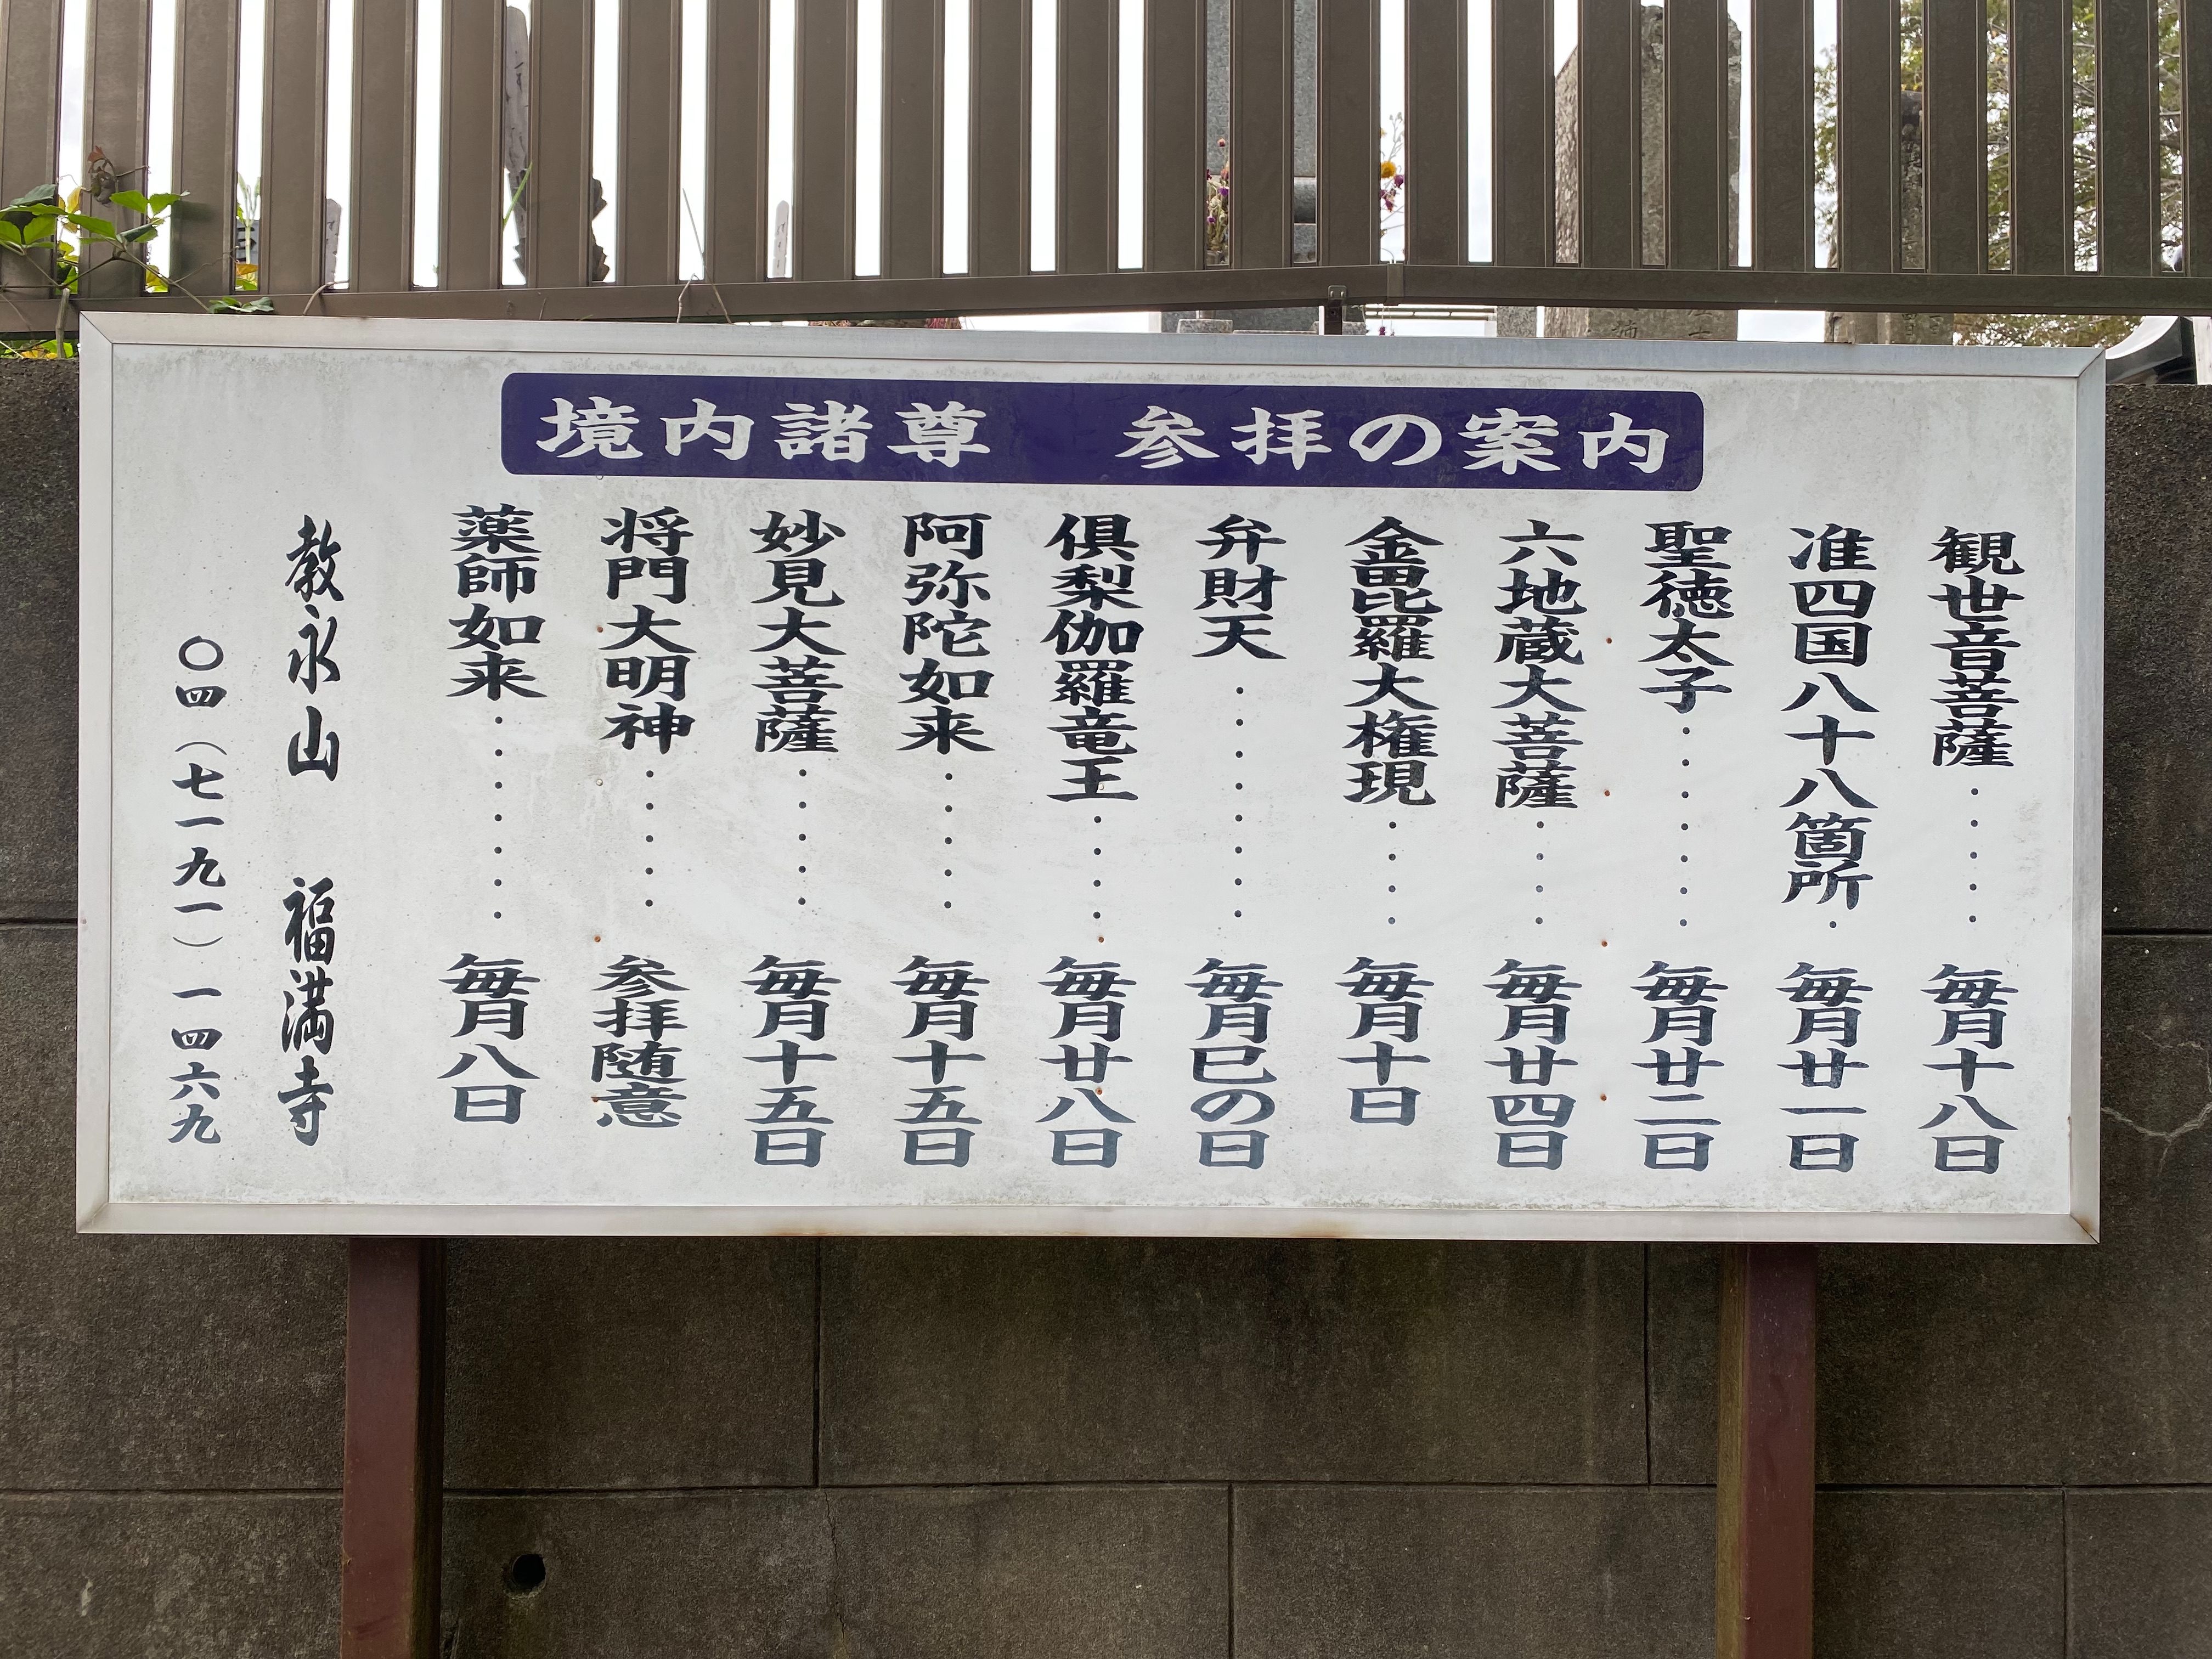 境内諸尊　参拝の案内
観世音菩薩・・・・・毎月十八日
准四国八十八箇所・毎月廿一日
聖徳太子・・・・・・・毎月廿二日
六地蔵大菩薩・・・・毎月廿四日
金毘羅大権現・・・・毎月十日
弁財天・・・・・・・・毎月巳の日
倶梨伽羅竜王・・・・毎月廿八日
阿弥陀如来・・・・・毎月十五日
妙見大菩薩・・・・・毎月十五日
将門大明神・・・・・参拝随意
薬師如来・・・・・・・毎月八日
教永山　福満寺
〇四（七一九一）一四六九